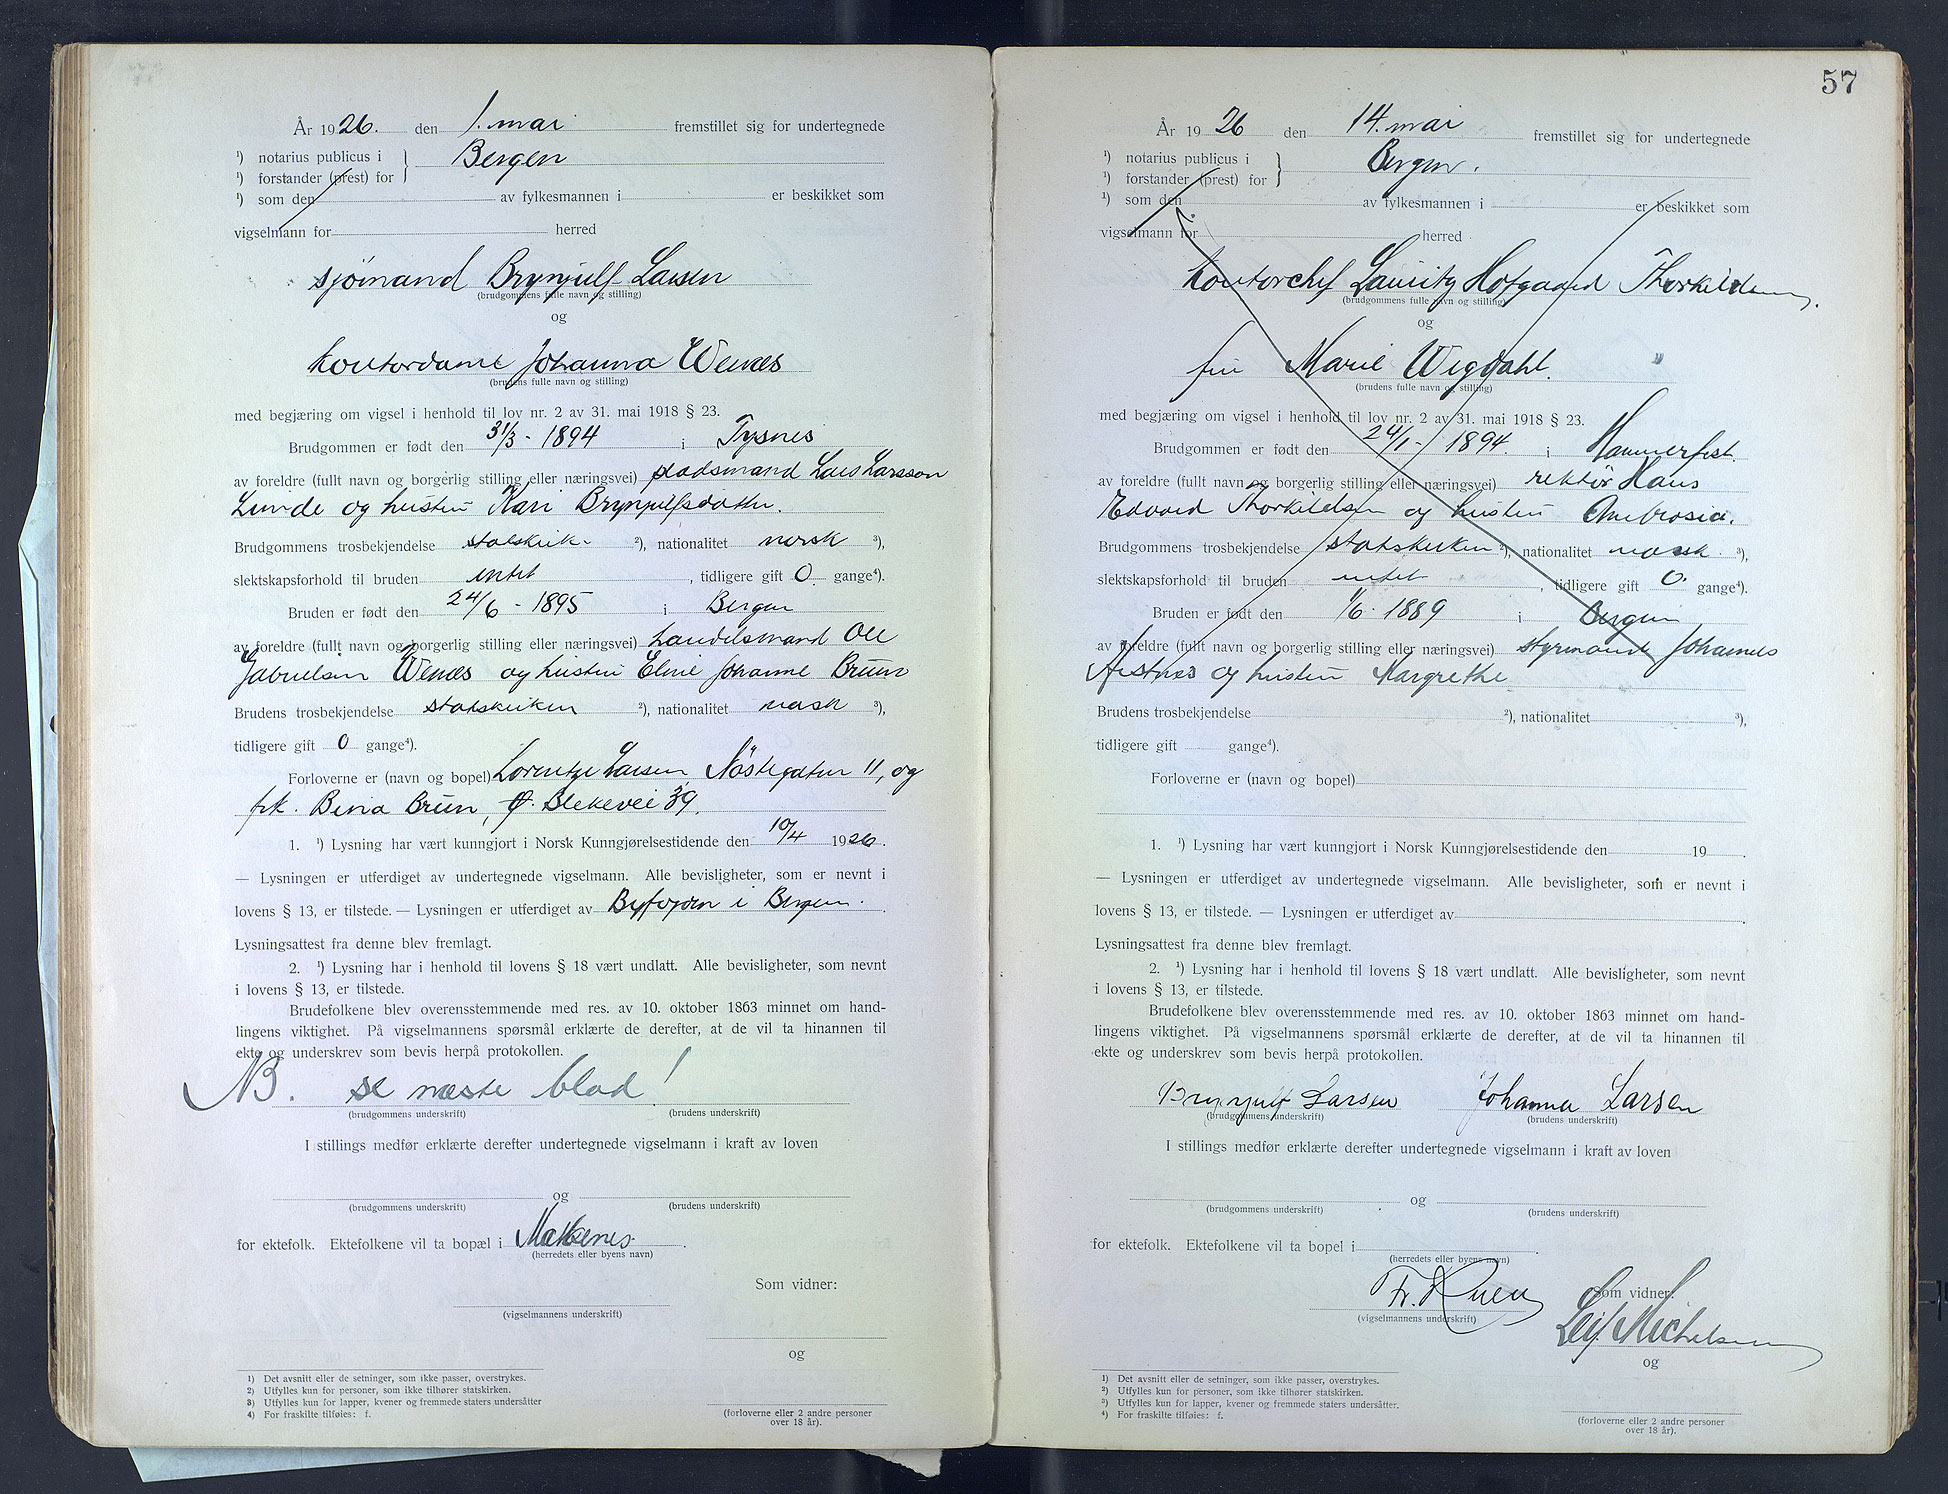 År 1926. den 1. mai fremstillet sig for undertegnede
¹) notarius publicus i } Bergen
¹) forstander (prest) for
¹) som den av fylkesmannen i er beskikket som
vigselmann for herred
sjömand Brynjulf Larsen
(brudgommens fulle navn og stilling)
og
kontordame Johanna Wenæs
(brudens fulle navn og stilling)
med begjæring om vigsel i henhold til lov nr. 2 av 31. mai 1918 § 23.
Brudgommen er født den 31/3 - 1894 i Tysnes
av foreldre (fullt navn og borgerlig stilling eller næringsvei) pladsmand Lars Larsson
Lunde og hustru Kari Brynjulfsdatter.
Brudgommens trosbekjendelse statskirk- ²), nationalitet norsk ³),
slektskapsforhold til bruden intet, tidligere gift 0. gange⁴).
Bruden er født den 24/6 - 1895 i Bergen
av foreldre (fullt navn og borgerlig stilling eller næringsvei) handelsmand Ole
Gabrielsen Wenæs og hustru Eline Johanne Bruun
Brudens trosbekjendelse statskirken ²), nationalitet norsk ³),
tidligere gift 0 gange⁴).
Forloverne er (navn og bopel) Lorentze Larsen, Nöstegaten 11, og
frk. Bina Bruun, Ø. Blekevei 39.
1. ¹) Lysning har vært kunngjort i Norsk Kunngjørelsestidende den 10/4 1926.
— Lysningen er utferdiget av undertegnede vigselmann. Alle bevisligheter, som er nevnt i
lovens § 13, er tilstede. — Lysningen er utferdiget av Byfogden i Bergen.
Lysningsattest fra denne blev fremlagt.
2. ¹) Lysning har i henhold til lovens § 18 vært undlatt. Alle bevisligheter, som nevnt
i lovens § 13, er tilstede.
Brudefolkene blev overensstemmende med res. av 10. oktober 1863 minnet om hand-
lingens viktighet. På vigselmannens spørsmål erklærte de derefter, at de vil ta hinannen til
ekte og underskrev som bevis herpå protokollen.
NB. se næste blad!
(brudgommens underskrift) (brudens underskrift)
I stillings medfør erklærte derefter undertegnede vigselmann i kraft av loven
og
(brudgommens underskrift) (brudens underskrift)
for ektefolk. Ektefolkene vil ta bopæl i
(herredets eller byens navn)
Som vidner:
(vigselmannens underskrift)
og
¹) Det avsnitt eller de setninger, som ikke passer, overstrykes.
²) Utfylles kun for personer, som ikke tilhører statskirken.
³) Utfylles kun for lapper, kvener og fremmede staters undersåtter
⁴) For fraskilte tilføies: f.
(forloverne eller 2 andre personer
over 18 år).
57
År 1926 den 14. mai fremstillet sig for undertegnede
¹) notarius publicus i } Bergen.
¹) forstander (prest) for
¹) som den av fylkesmannen i er beskikket som
vigselmann for herred
kontorchef Lauritz Hofgaard Thorkildsen.
(brudgommens fulle navn og stilling)
og
fru Marie Wigdahl.
(brudens fulle navn og stilling)
med begjæring om vigsel i henhold til lov nr. 2 av 31. mai 1918 § 23.
Brudgommen er født den 24/1 - 1894. i Hammerfest.
av foreldre (fullt navn og borgerlig stilling eller næringsvei) rektör Hans
Edvard Thorkildsen og hustru Ambrosia.
Brudgommens trosbekjendelse statskirken ²), nationalitet norsk ³),
slektskapsforhold til bruden intet, tidligere gift 0. gange⁴).
Bruden er født den 1/6 - 1889 i Bergen
av foreldre (fullt navn og borgerlig stilling eller næringsvei) styrmand Johannes
og hustru Margrethe
Brudens trosbekjendelse ²), nationalitet ³),
tidligere gift gange⁴).
Forloverne er (navn og bopel)
1. ¹) Lysning har vært kunngjort i Norsk Kunngjørelsestidende den 19 .
— Lysningen er utferdiget av undertegnede vigselmann. Alle bevisligheter, som er nevnt i
lovens § 13, er tilstede. — Lysningen er utferdiget av
Lysningsattest fra denne blev fremlagt.
2. ¹) Lysning har i henhold til lovens § 18 vært undlatt. Alle bevisligheter, som nevnt
i lovens § 13, er tilstede.
Brudefolkene blev overensstemmende med res. av 10. oktober 1863 minnet om hand-
lingens viktighet. På vigselmannens spørsmål erklærte de derefter, at de vil ta hinannen til
ekte og underskrev som bevis herpå protokollen.
Brynjulf Larsen Johanna Larsen
(brudgommens underskrift) (brudens underskrift)
I stillings medfør erklærte derefter undertegnede vigselmann i kraft av loven
og
(brudgommens underskrift) (brudens underskrift)
for ektefolk. Ektefolkene vil ta bopel i
(herredets eller byens navn)
Fr.
Som vidner:
(vigselmannens underskrift) Leif Michelsen
og
¹) Det avsnitt eller de setninger, som ikke passer, overstrykes.
²) Utfylles kun for personer, som ikke tilhører statskirken.
³) Utfylles kun for lapper, kvener og fremmede staters undersåtter.
⁴) For fraskilte tilføies: f.
(forloverne eller 2 andre personer
over 18 år).